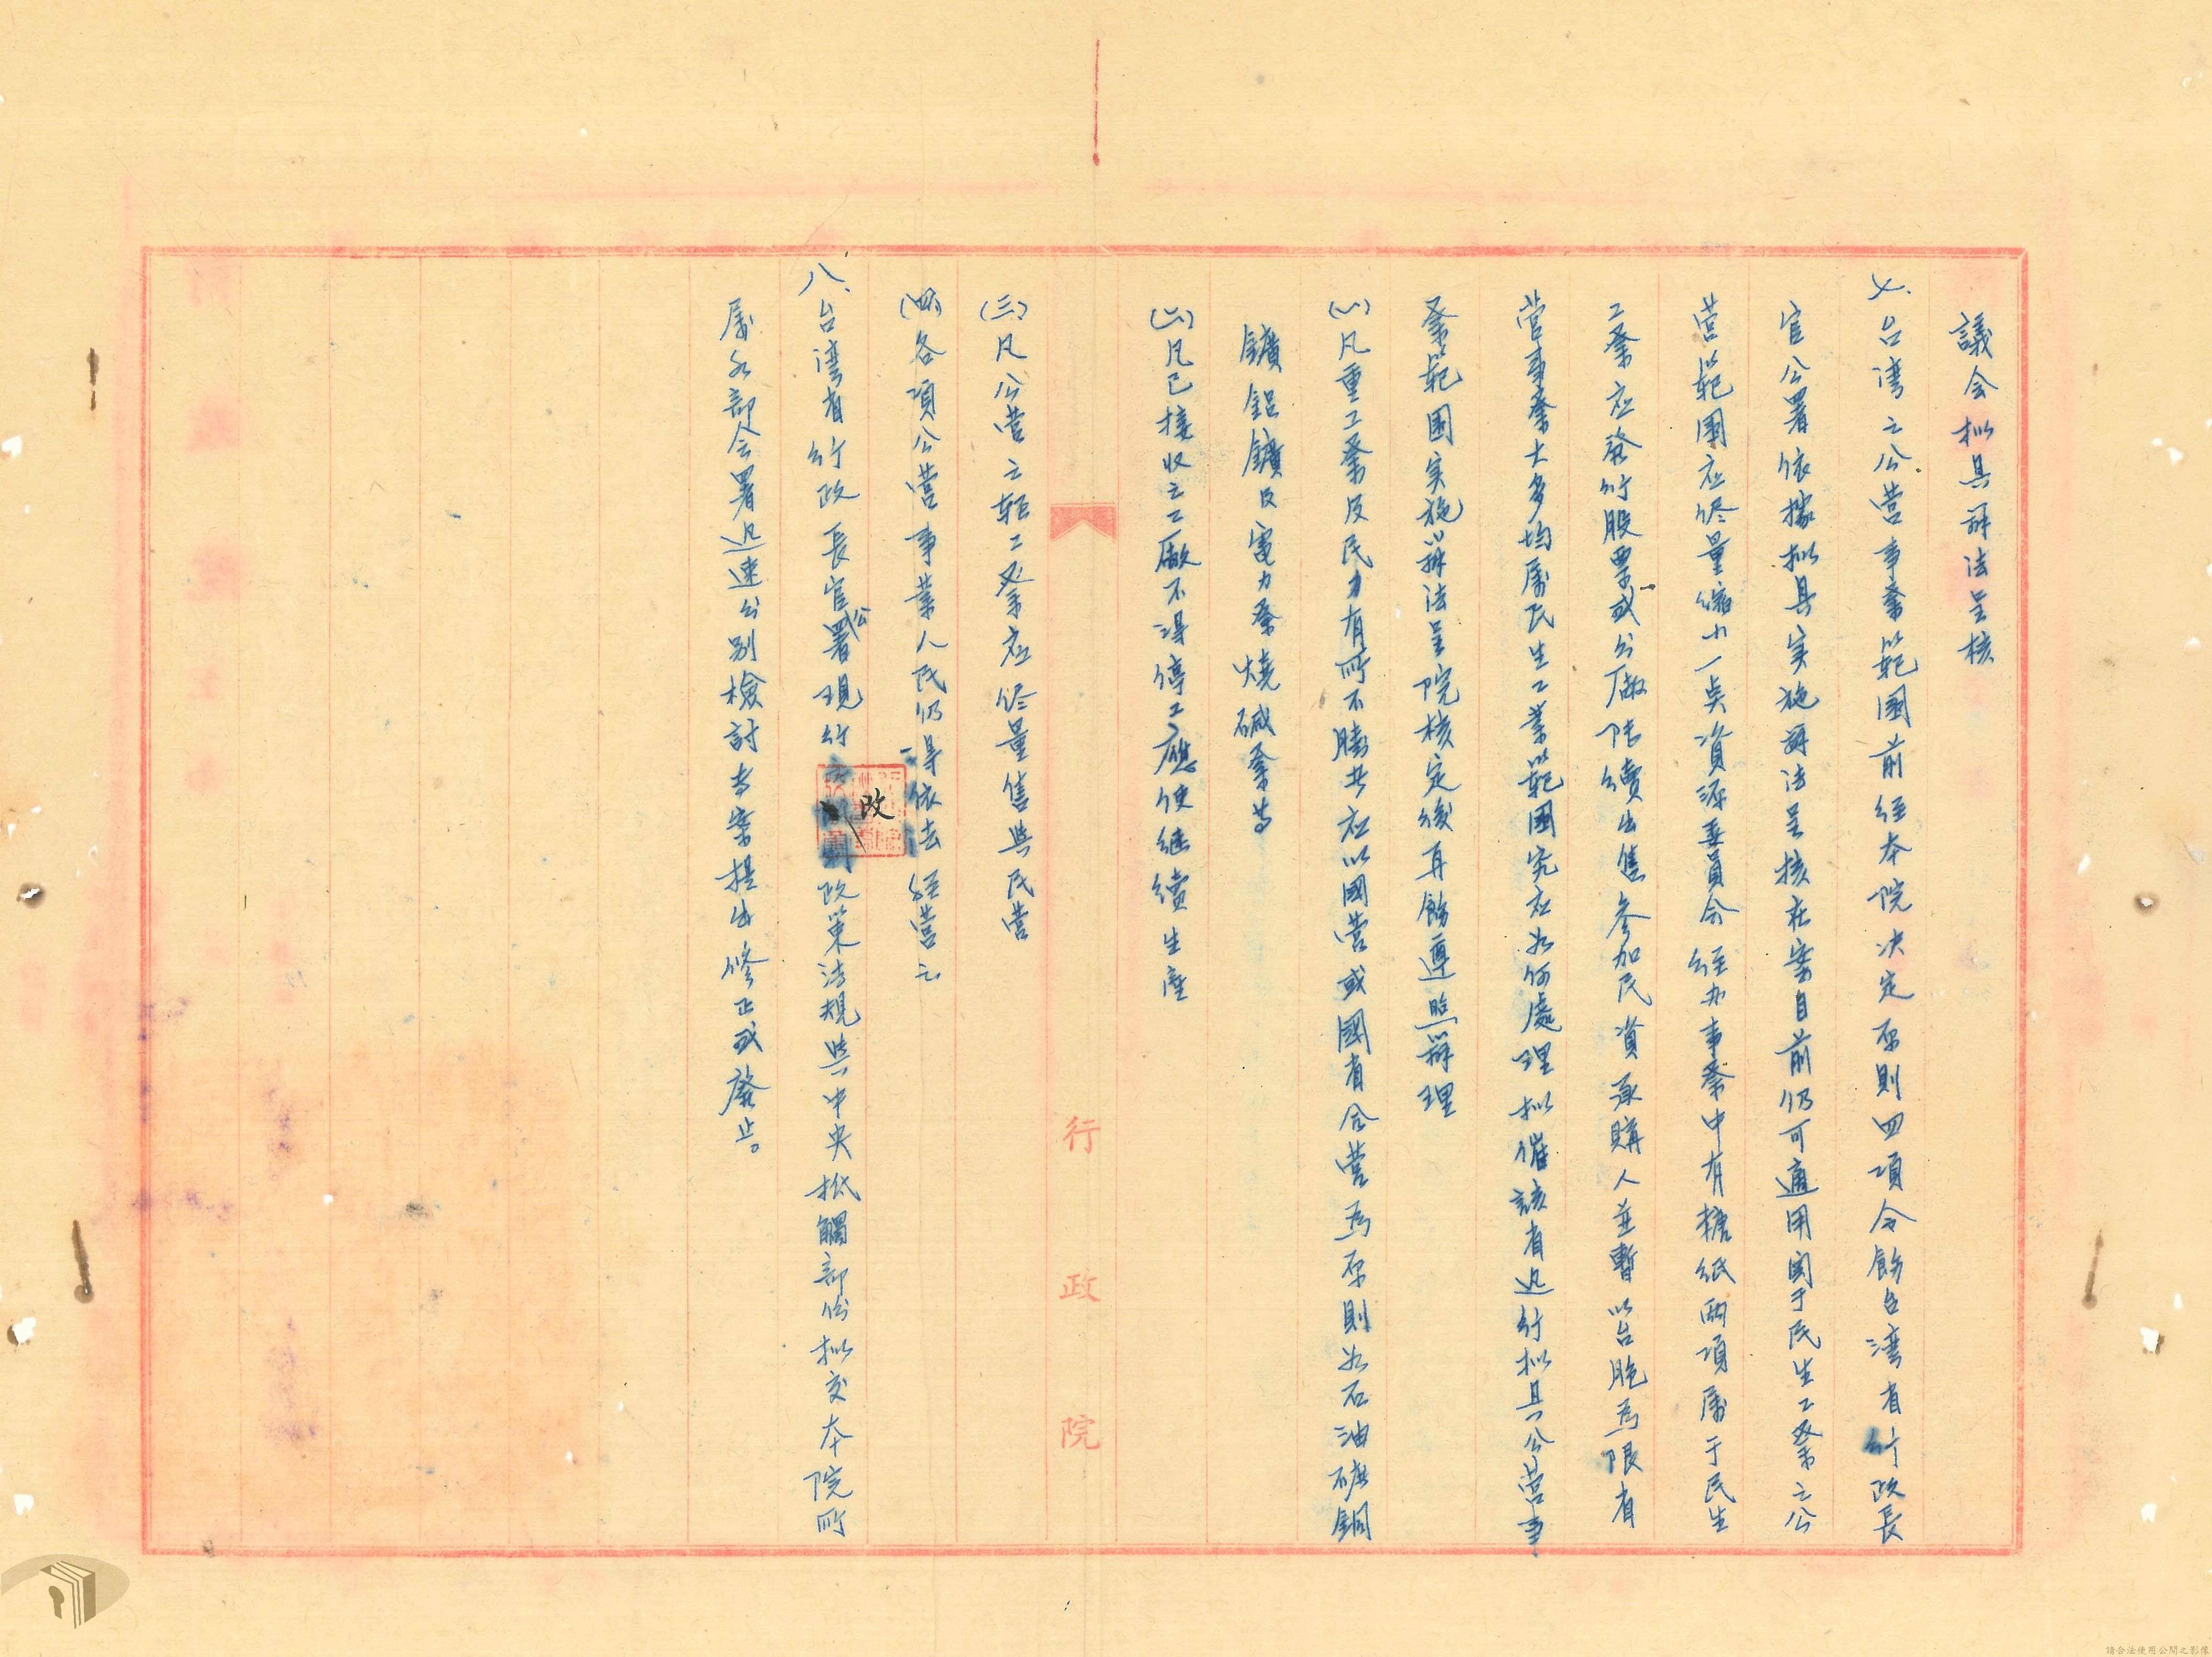 議会拟具辦法呈核
七、台湾之公营事業範圍前経本院决定原則四項令飭台湾省行政長
官公署依據拟具实施辦法呈核在案目前仍可適用関于民生工業之公
营範圍应儘量缩小一点資源委員会経办事業中有糖纸兩項属于民生
工業应發行股票或分厰陸續出售参加民資承購人並暫以台胞為限省
营事業大多均属民生工業範圍究应如何處理拟催該省迅行拟具公营事
業範圍实施辦法呈院核定後再飭遵照辦理
(一)凡重工業及民力有所不勝者应以國营或國省合营為原則如石油礦銅
鑛鋁鑛及電力業燒碱業等
(二)凡已接收之工厰不得停工應使継續生産
(三)凡公营之輕工業应儘量售與民营
(四)各項公营事業人民仍得依法経营之
八、台湾省行政長官公署現行政策法規與中央抵觸部份拟交本院所
属各部会署迅速分别檢討专案提出修正或廢止。
改
行政院
請合法使用公開之影像